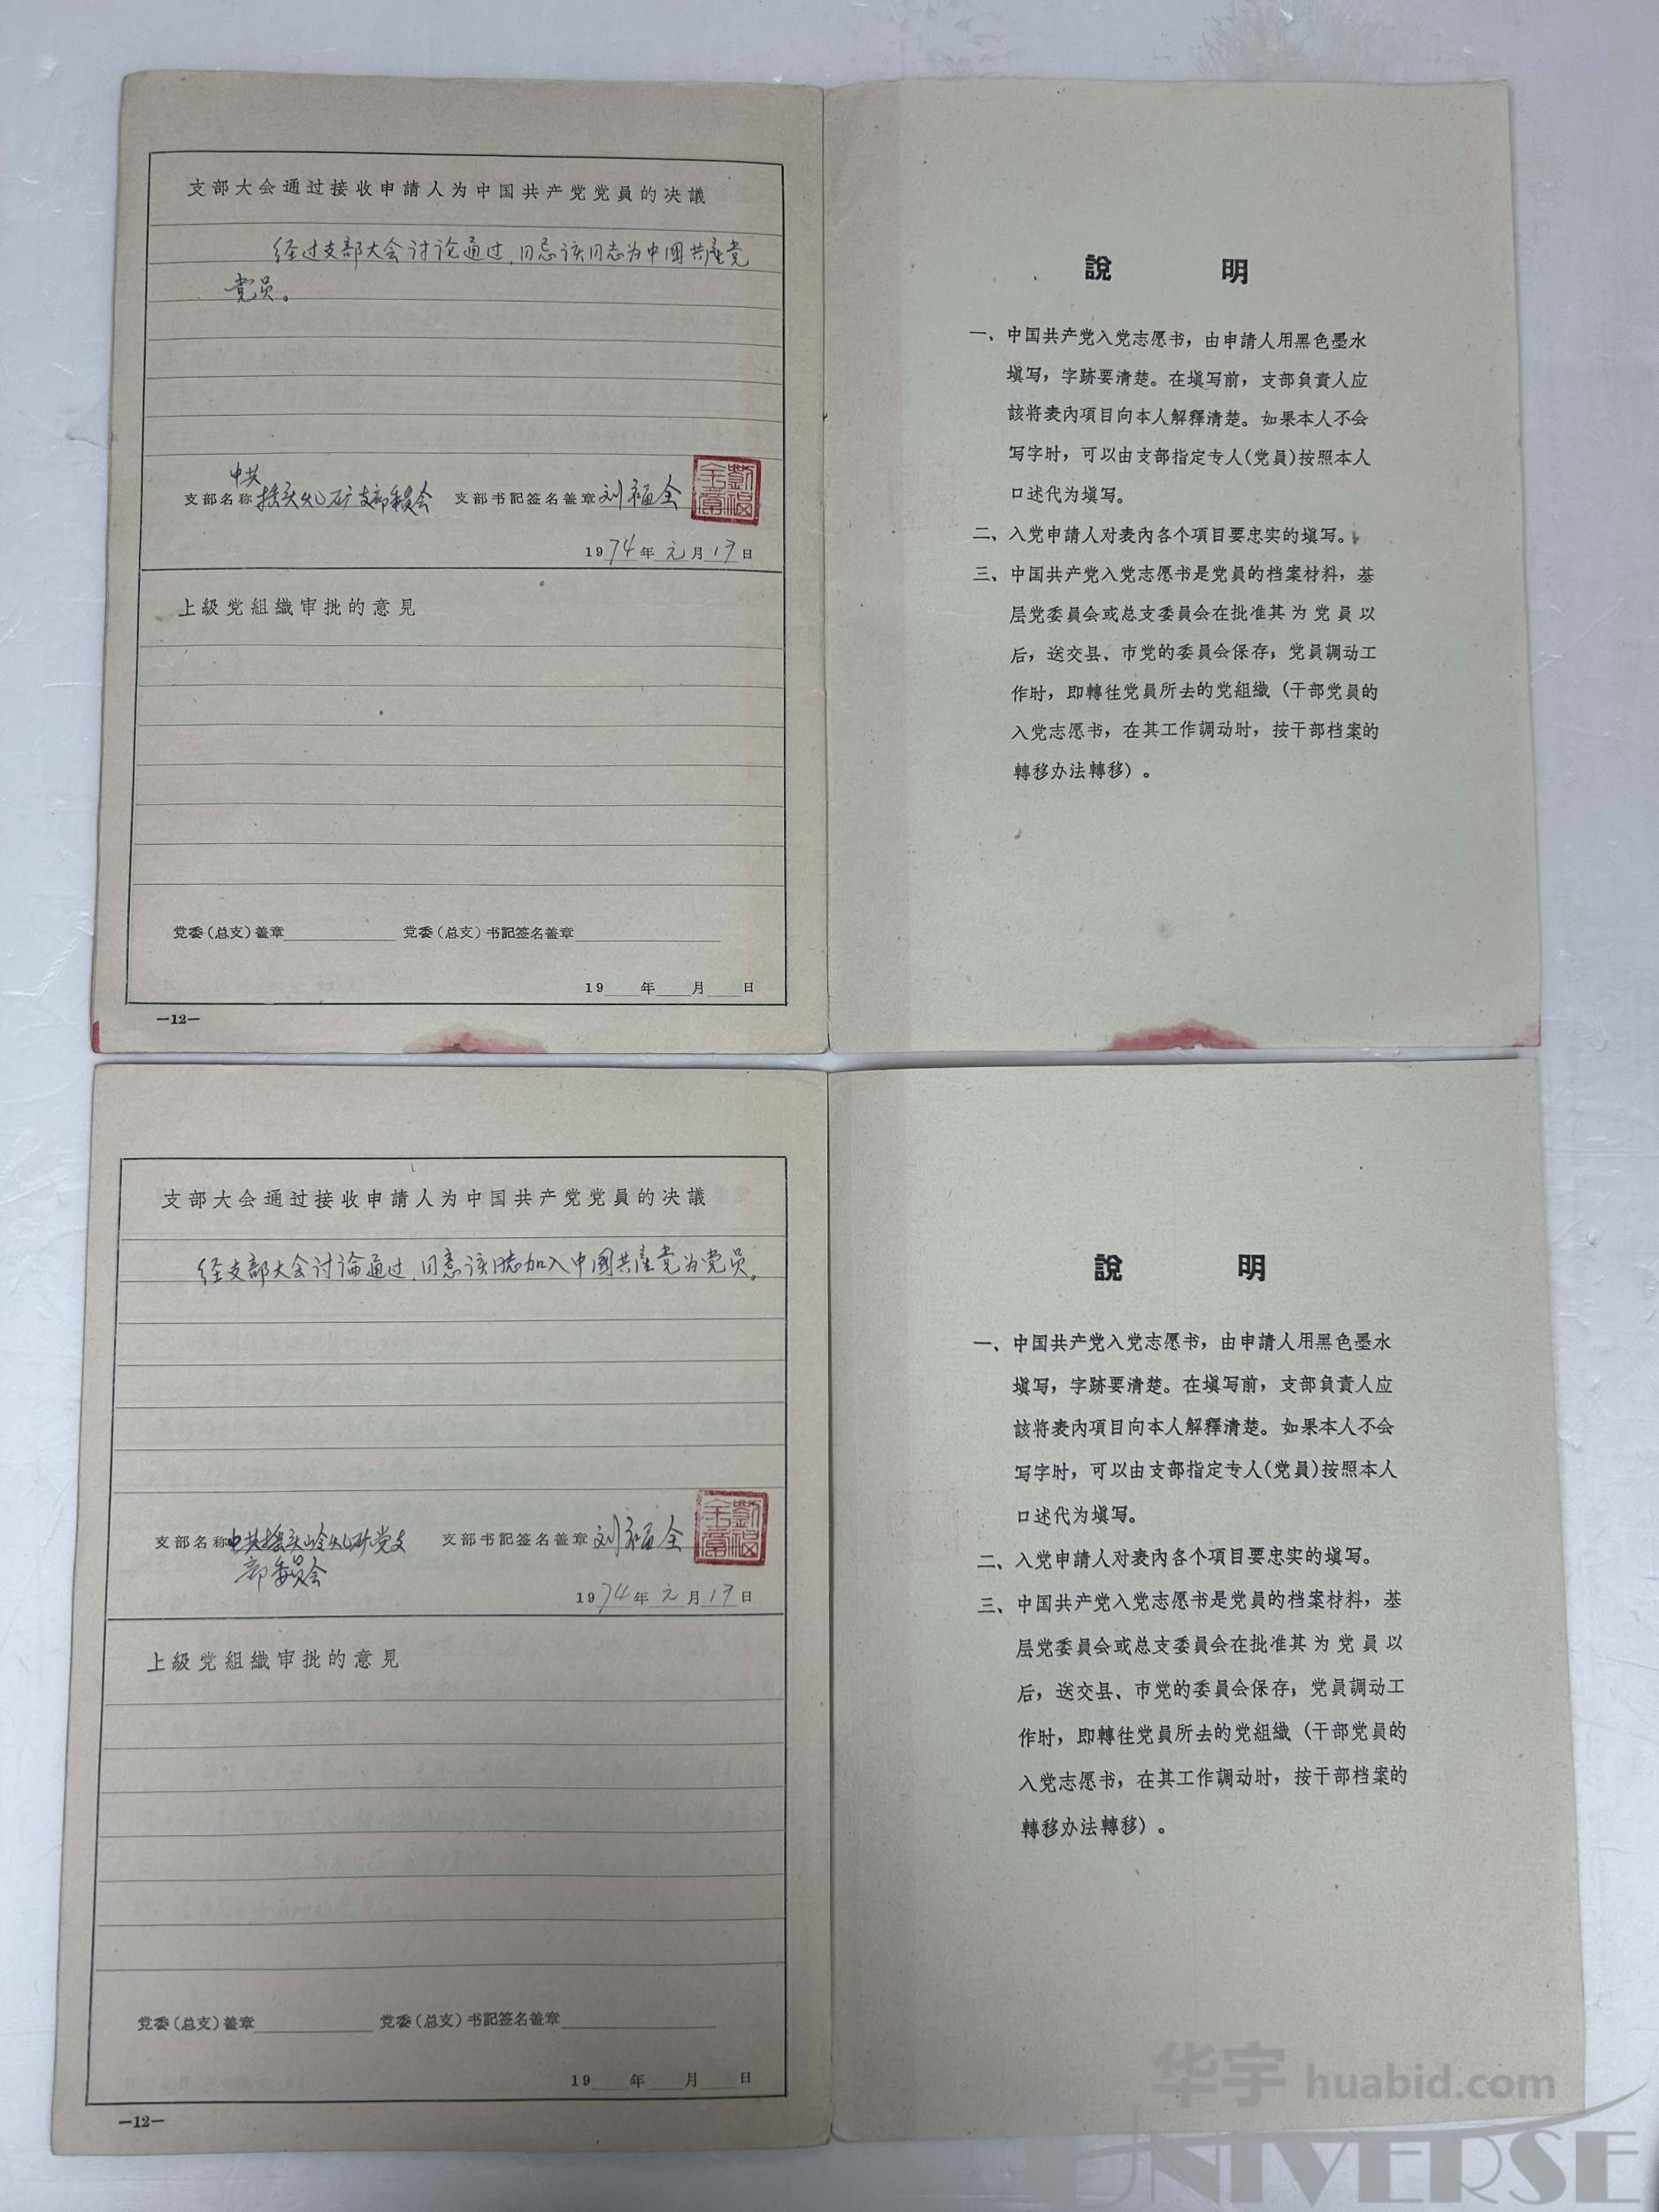 支部大会通过接收申請人为中国共产党党員的决議
经过支部大会讨论通过,同意该同志为中國共產党
党员。
中共
支部名称 矿支部委员会 支部书記签名盖章 刘福全
劉福全章
1974年元月17日
上級党組織审批的意見
党委(总支)盖章 党委(总支)书記签名盖章
19 年 月 日
—12—
說 明
一、中国共产党入党志愿书,由申請人用黑色墨水
填写,字跡要清楚。在填写前,支部負責人应
該将表內項目向本人解釋清楚。如果本人不会
写字时,可以由支部指定专人(党員)按照本人
口述代为填写。
二、入党申請人对表內各个項目要忠实的填写。
三、中国共产党入党志愿书是党員的档案材料,基
层党委員会或总支委員会在批准其为党員以
后,送交县、市党的委員会保存;党員調动工
作时,即轉往党員所去的党組織(干部党員的
入党志愿书,在其工作調动时,按干部档案的
轉移办法轉移)。
支部大会通过接收申請人为中国共产党党員的决議
经支部大会讨論通过,同意该同志加入中國共產党为党员。
支部名称 中共 矿党支 支部书記签名盖章 刘福全
部委员会
劉福全章
1974年元月17日
上級党組織审批的意見
党委(总支)盖章 党委(总支)书記签名盖章
19 年 月 日
—12—
說 明
一、中国共产党入党志愿书,由申請人用黑色墨水
填写,字跡要清楚。在填写前,支部負責人应
該将表內項目向本人解釋清楚。如果本人不会
写字时,可以由支部指定专人(党員)按照本人
口述代为填写。
二、入党申請人对表內各个項目要忠实的填写。
三、中国共产党入党志愿书是党員的档案材料,基
层党委員会或总支委員会在批准其为党員以
后,送交县、市党的委員会保存;党員調动工
作时,即轉往党員所去的党組織(干部党員的
入党志愿书,在其工作調动时,按干部档案的
轉移办法轉移)。
华宇 huabid.com
UNIVERSE